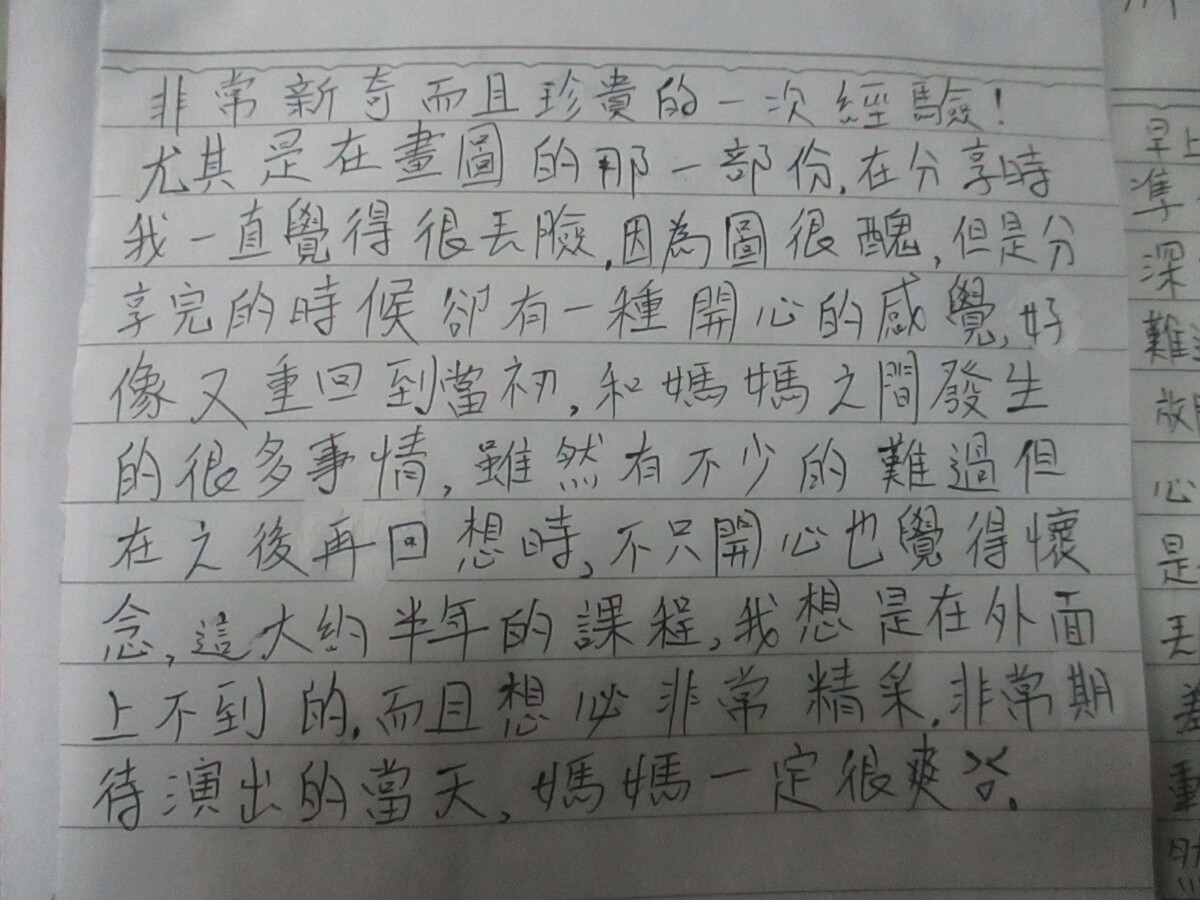 非常新奇而且珍貴的一次經驗!
尤其是在畫圖的那一部份,在分享時
我一直覺得很丟臉,因為圖很醜,但是分
享完的時候卻有一種開心的感覺,好
像又重回到當初,和媽媽之間發生
的很多事情,雖然有不少的難過但
在之後再回想時,不只開心也覺得懷
念,這大約半年的課程,我想是在外面
上不到的,而且想必非常精采,非常期
待演出的當天,媽媽一定很爽
早上
準
深
難
放
心
是
丟
差
重